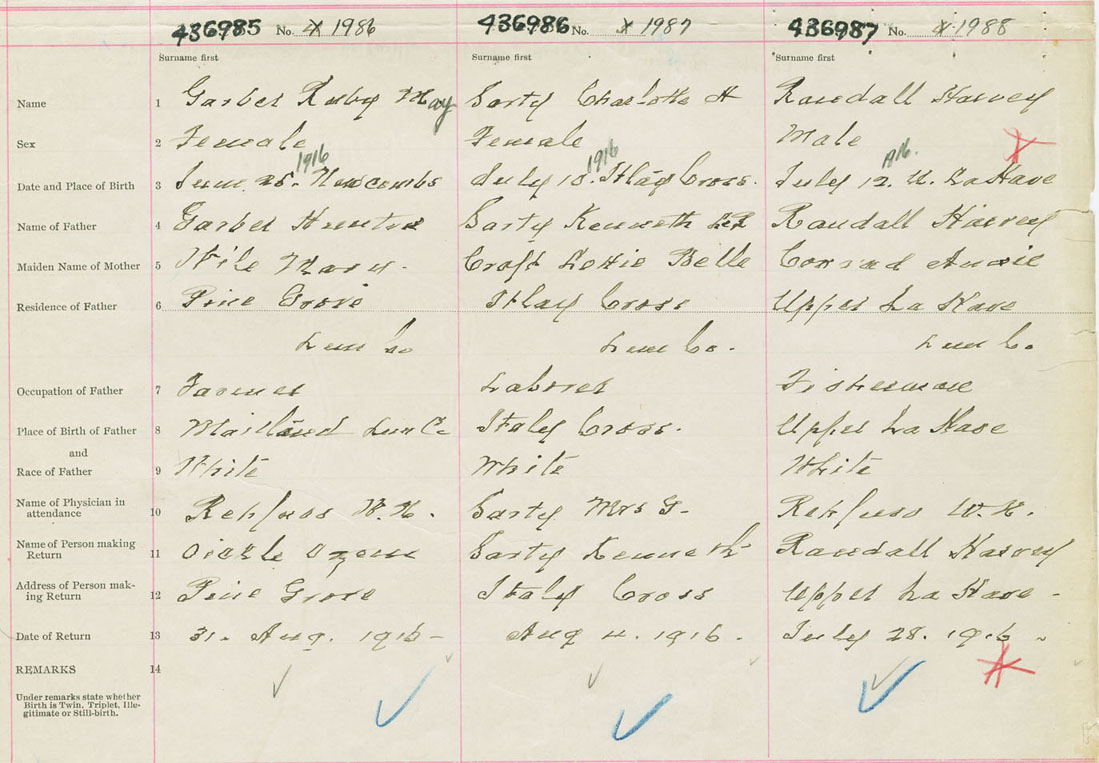 436985 No. 1986 436986 No. 1987 436987 No. 1988
Surname first Surname first Surname first
Name 1 Garber Ruby May Sarty Charlotte H Randall Harvey
Sex 2 Female Female Male
1916 1916 1916.
Date and Place of Birth 3 June 25. Newcombs July 10. Italy Cross. July 12. U. LaHave
Name of Father 4 Garber Hunter Sarty Kenneth Randall Harvey
Maiden Name of Mother 5 Wile Mary. Croft Lottie Belle Conrad Annie
Residence of Father 6 Pine Grove Italy Cross Upper La Have
Lun Co Lun Co. Lun Co.
Occupation of Father 7 Farmer Laborer Fisherman
Place of Birth of Father 8 Maitland Lun Co Italy Cross. Upper La Have
and
Race of Father 9 White White White
Name of Physician in
attendance 10 Rehfuss W. N. Sarty Mrs G- Rehfuss W. N.
Name of Person making
Return 11 Oickle Sarty Kenneth Randall Harvey
Address of Person mak-
ing Return 12 Pine Grove Italy Cross Upper La Have -
Date of Return 13 31. Aug. 1916 - Aug 4. 1916. July 28. 1916 -
REMARKS 14
Under remarks state whether
Birth is Twin, Triplet, Ille-
gitimate or Still-birth.